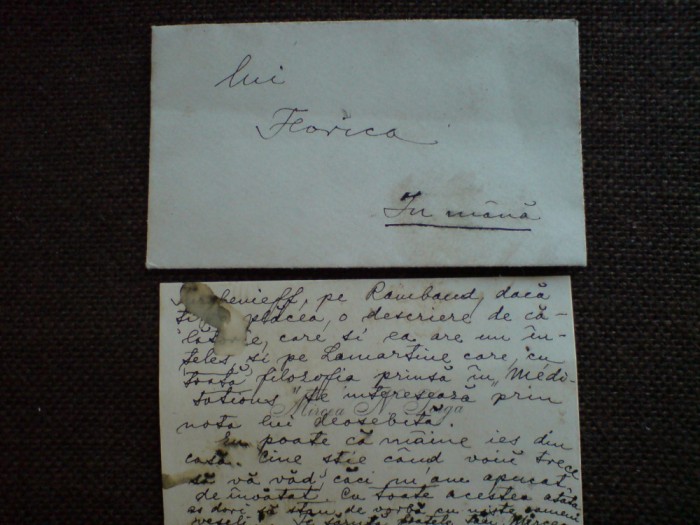 lui
Florica
In mână
pe Rambaud, dacă
plăcea, o descriere de că-
care si ea are un în-
țeles, si pe Lamartine care, cu
toată filozofia prinsă în „Médi-
tations" te interesează prin
Mircea N.
nota lui deosebită.
Eu poate că mâine ies din
casă. Cine stie când voiu trece
să vă văd, căci m'am apucat
de învătat. Cu toate acestea atâta
as dori să stau de vorbă cu niste oameni
veseli